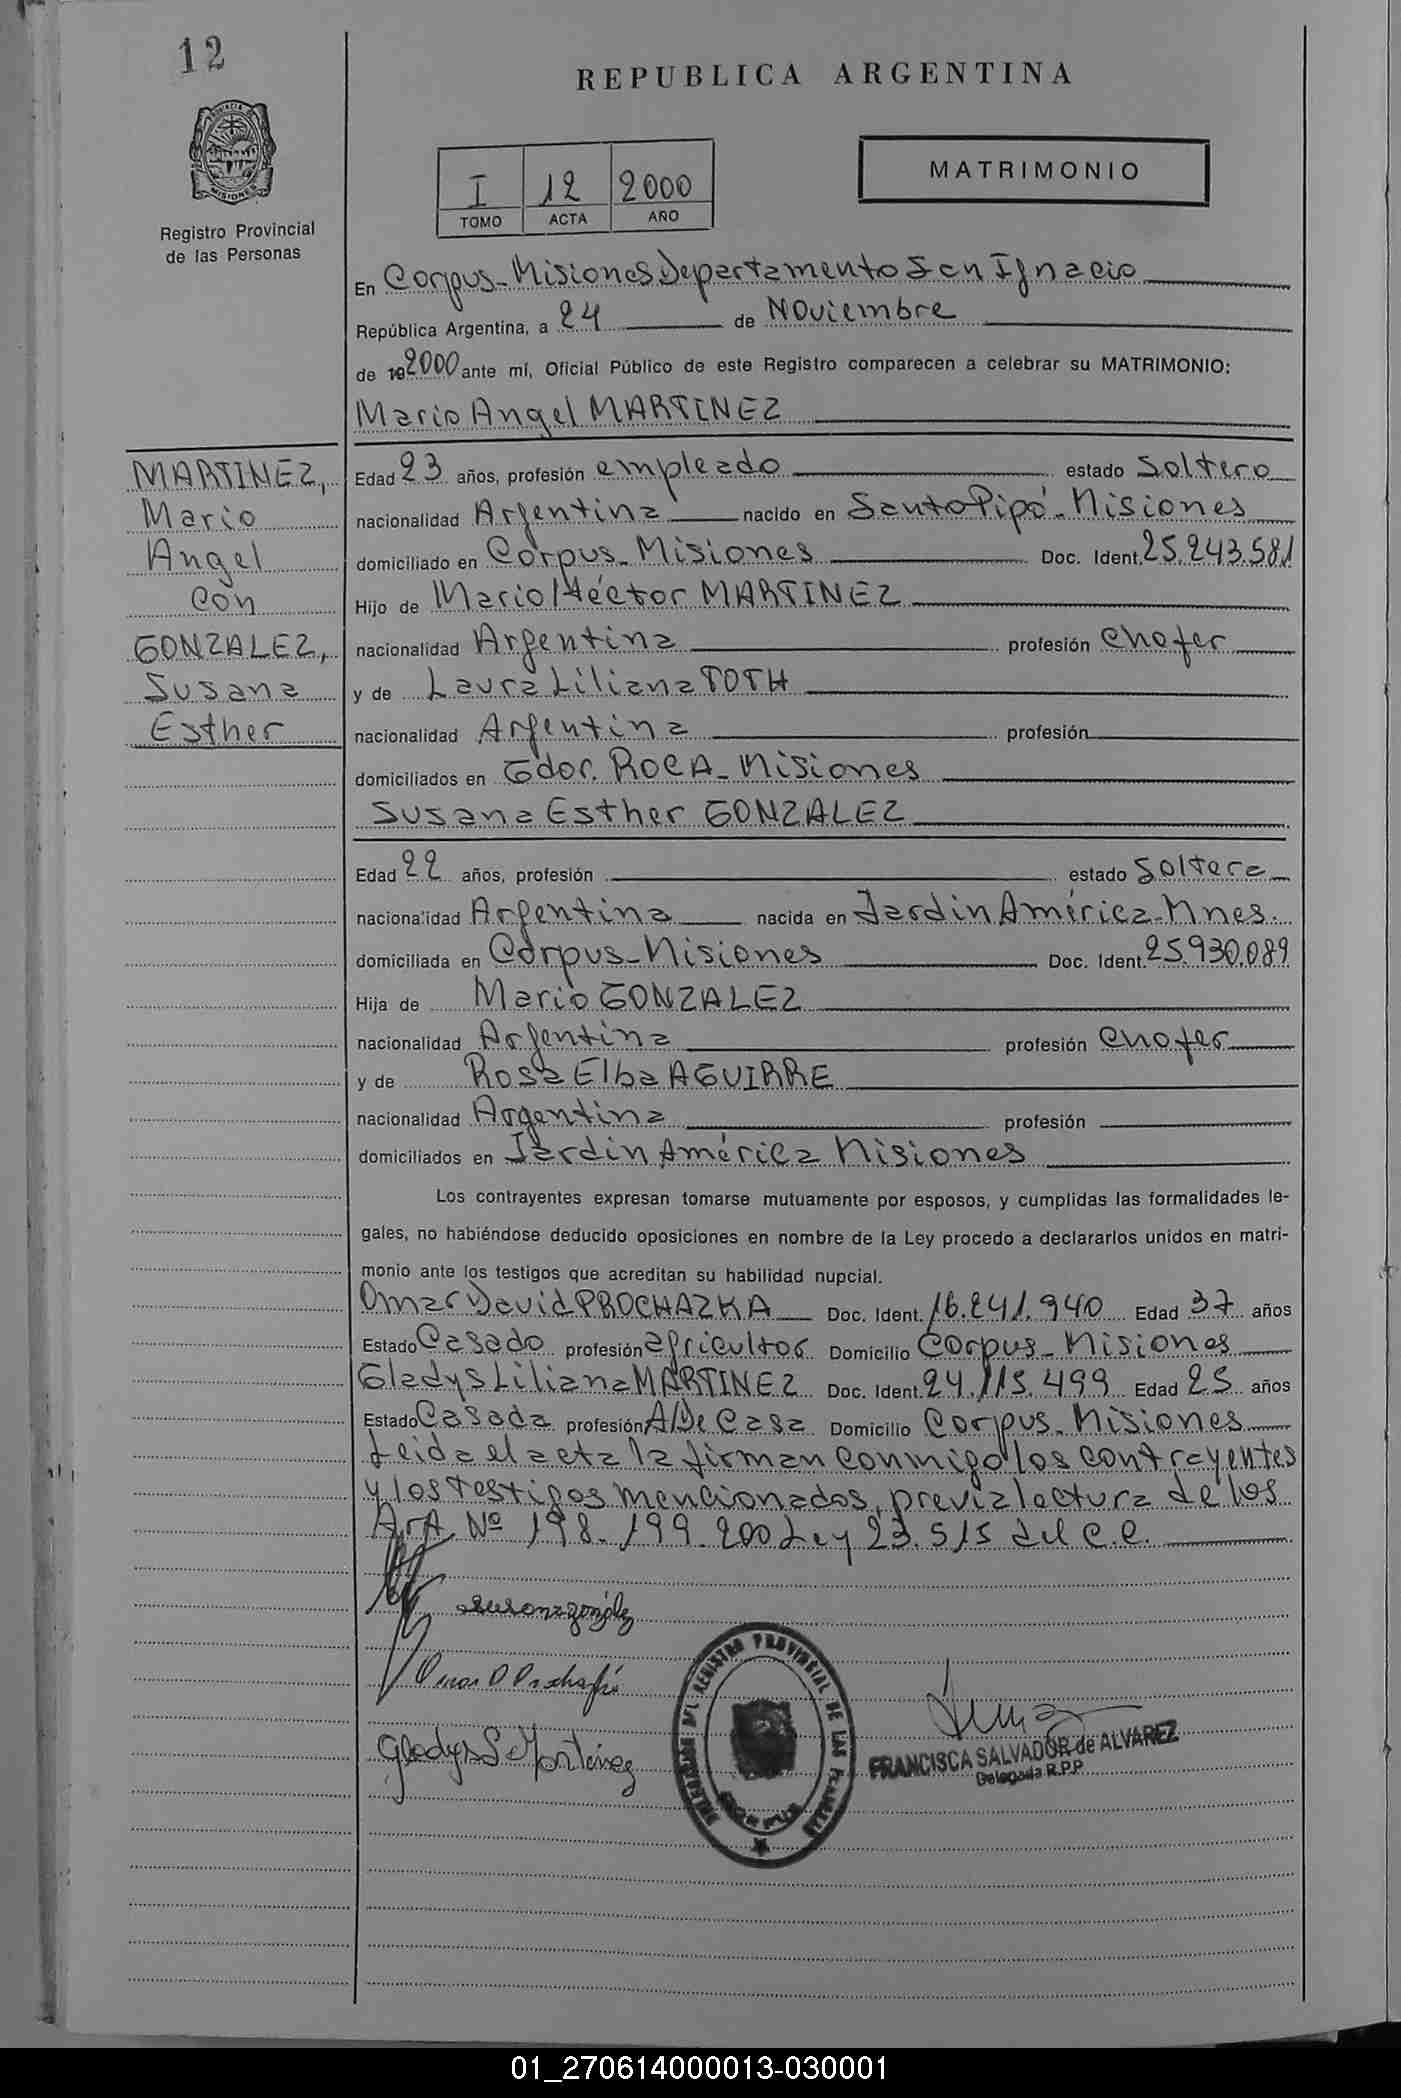 12
REPUBLICA ARGENTINA
MISIONES
Registro Provincial
de las Personas
I 12 2000
TOMO ACTA AÑO
MATRIMONIO
En Corpus-Misiones Departamento San Ignacio
República Argentina, a 24 de Noviembre
de 192000 ante mí, Oficial Público de este Registro comparecen a celebrar su MATRIMONIO:
Mario Angel MARTINEZ
MARTINEZ,
Mario
Angel
con
GONZALEZ,
Susana
Esther
Edad 23 años, profesión empleado estado Soltero
nacionalidad Argentina nacido en Santo Pipó-Misiones
domiciliado en Corpus-Misiones Doc. Ident. 25.243.581
Hijo de Mario Héctor MARTINEZ
nacionalidad Argentina profesión chofer
y de Laura Liliana TOTH
nacionalidad Argentina profesión
domiciliados en Gdor. ROCA-Misiones
Susana Esther GONZALEZ
Edad 22 años, profesión estado Soltera
nacionalidad Argentina nacida en Jardin América-Mnes.
domiciliada en Corpus-Misiones Doc. Ident. 25.930.089
Hija de Mario GONZALEZ
nacionalidad Argentina profesión chofer
y de Rosa Elba AGUIRRE
nacionalidad Argentina profesión
domiciliados en Jardin América Misiones
Los contrayentes expresan tomarse mutuamente por esposos, y cumplidas las formalidades le-
gales, no habiéndose deducido oposiciones en nombre de la Ley procedo a declararlos unidos en matri-
monio ante los testigos que acreditan su habilidad nupcial.
Omar David PROCHAZKA Doc. Ident. 16.241.940 Edad 37 años
Estado Casado profesión agricultor Domicilio Corpus-Misiones
Gladys Liliana MARTINEZ Doc. Ident. 24.115.499 Edad 25 años
Estado Casada profesión A/De Casa Domicilio Corpus-Misiones
Leida el acta la firman conmigo los contrayentes
y los testigos mencionados, previa lectura de los
Art. Nº 198. 199. 200 Ley 23.515 del C.C.
susana gonzález
Omar D Prochazka
Gladys L Martinez
REGISTRO PROVINCIAL DE LAS PERSONAS
FRANCISCA SALVADOR de ALVAREZ
Delegada R.P.P.
01_270614000013-030001